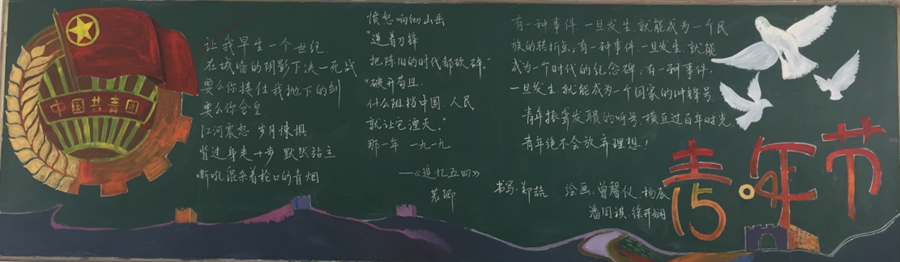 中国共青团
让我早生一个世纪
在城墙的阴影下决一死战
要么你接住我抛下的剑
要么你合皇
江河哀怒 岁月悚惧
背过身走十步 默然站立
嘶吼混杂着枪口的青烟
愤怒响彻山岳
"迎着刀锋
把陈旧的时代都砍碎。"
"破开苟且,
什么阻挡中国 人民
就让它湮灭。"
那一年 一九一九
——《追忆五四》
有一种事件 一旦发生,就能成为一个民
族的转折点;有一种事件 一旦发生,就能
成为一个时代的纪念碑;有一种事件,
一旦发生,就能成为一个国家的冲锋号。
青年振奋发聩的呐号,横亘过百年时光,
青年绝不会放弃理想!
书写:郑 绘画:曾馨仪 杨辰
潘同祺 徐
青年节
5·4